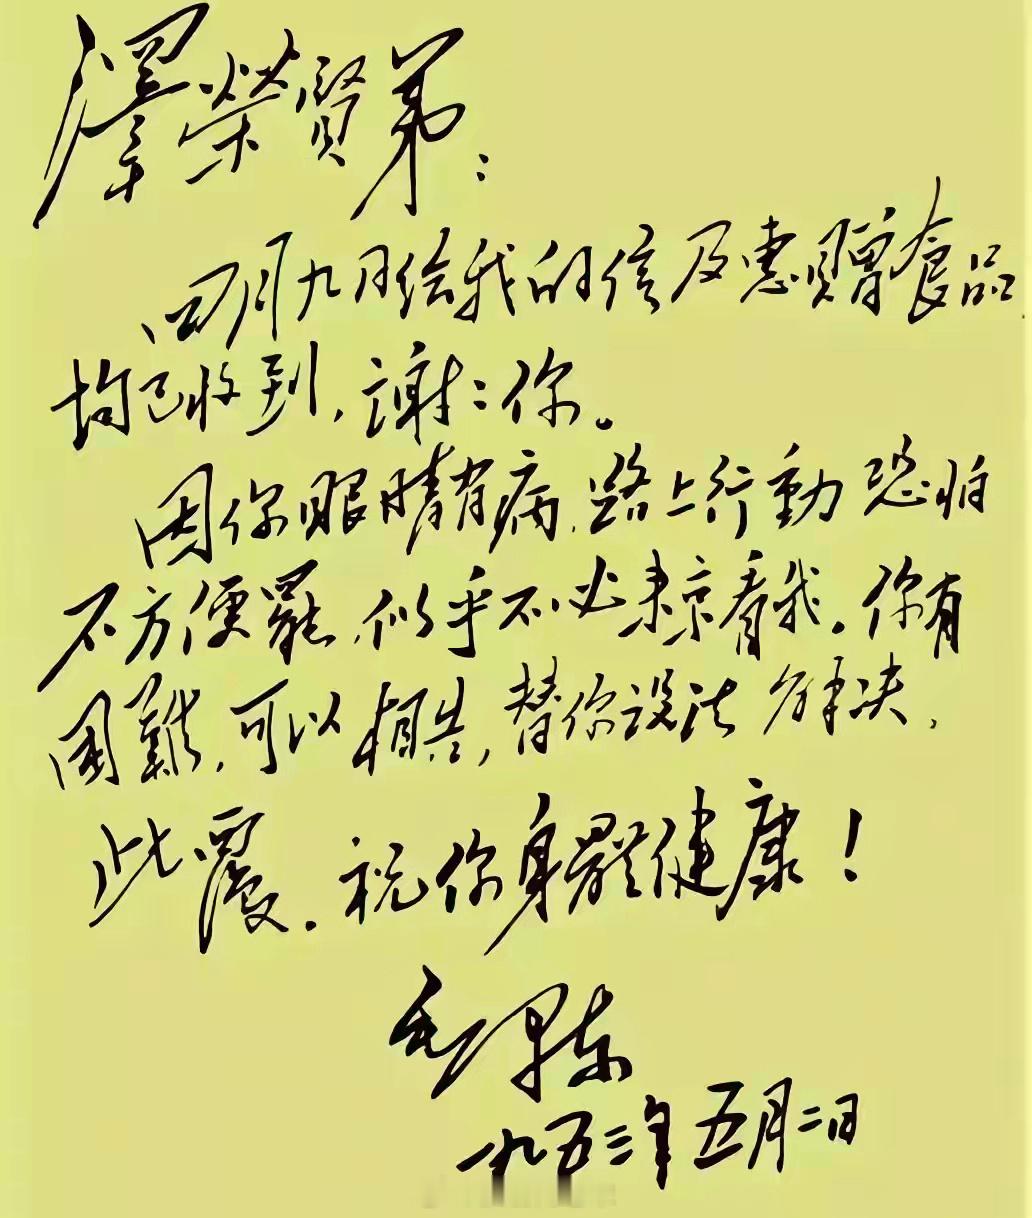 澤榮賢弟：
四月九日给我的信及惠贈食品
均已收到，謝謝你。
因你眼睛有病，路上行動恐怕
不方便罷，似乎不必来京看我。你有
困難，可以相告，替你设法解决。
此覆。祝你身體健康！
毛澤东
一九五三年五月二日